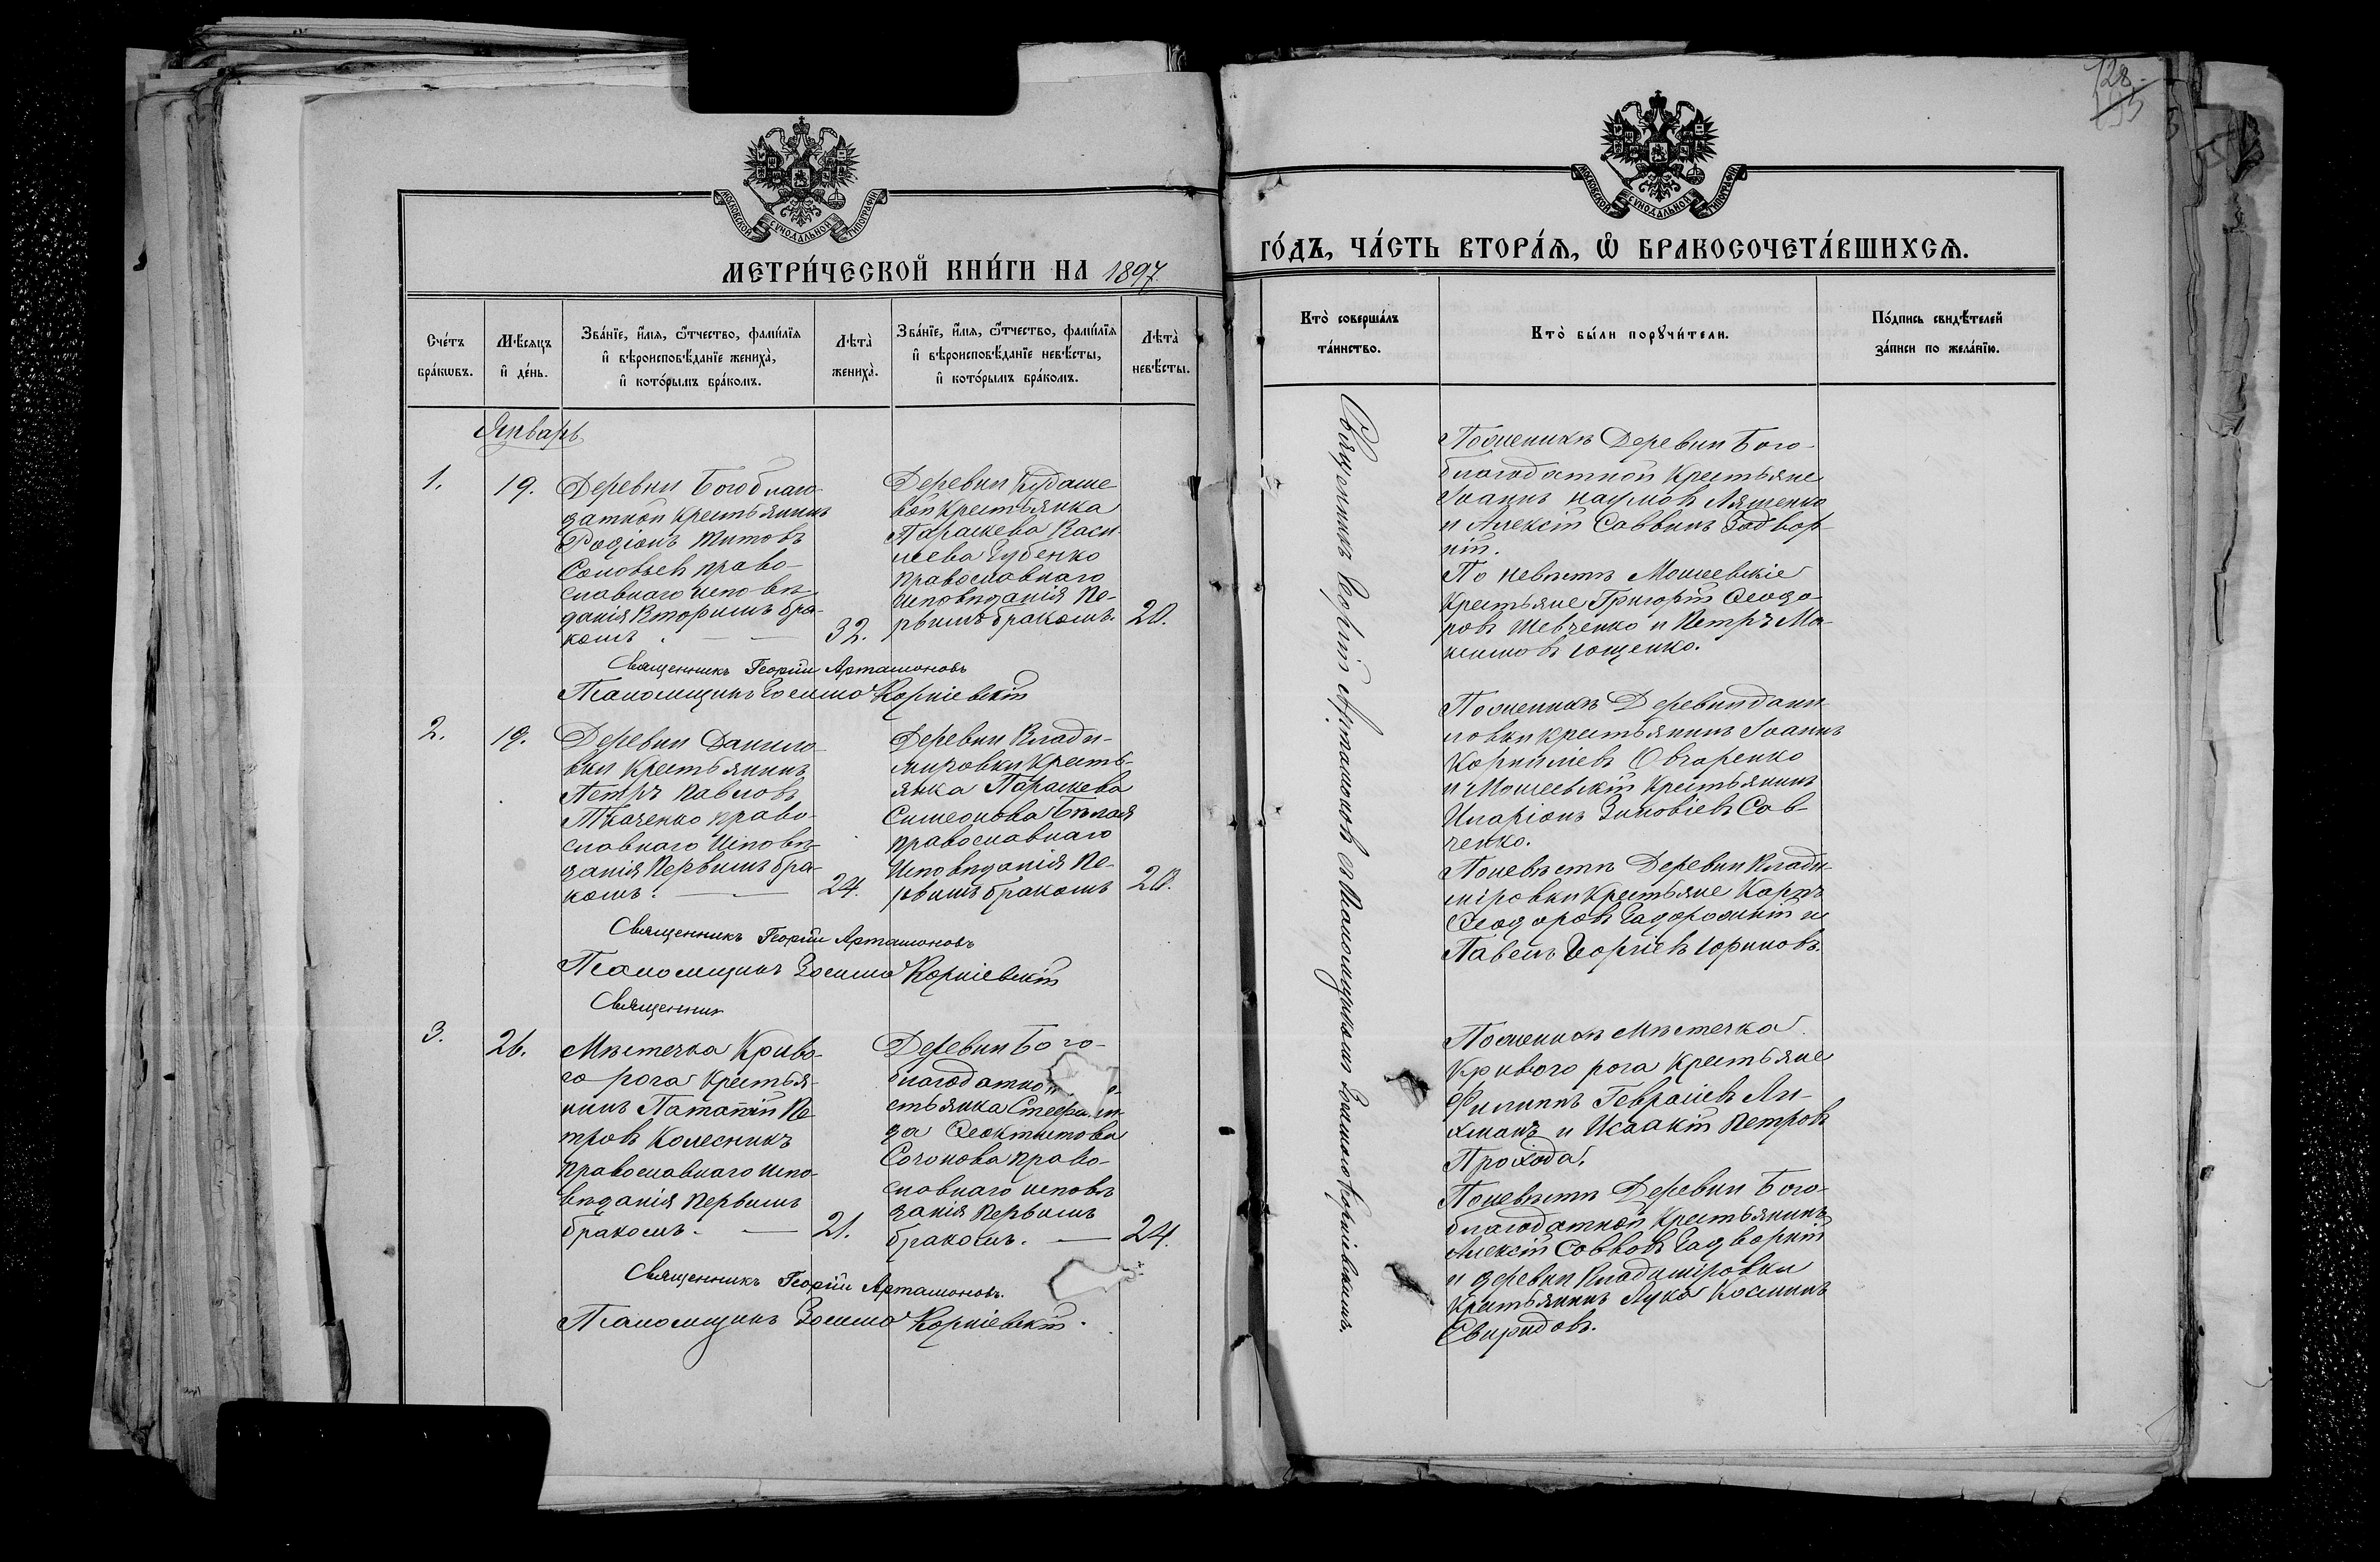 128.
193
МОСКОВСКОЙ СУНОДАЛЬНОЙ ТИПОГРАФІИ
МЕТРИ́ЧЕСКОЙ КНИ́ГИ НА 1897
Сче́тъ бра́кωвъ.
Мѣ́сяцъ и҆ де́нь.
Зва́нїе, и҆́мѧ, ѻ҆́тчество, фами́лїѧ и҆ вѣроисповѣ́данїе жениха̀, и҆ кото́рымъ бра́комъ.
Лѣта̀ жениха̀.
Зва́нїе, и҆́мѧ, ѻ҆́тчество, фами́лїѧ и҆ вѣроисповѣ́данїе невѣ́сты, и҆ кото́рымъ бра́комъ.
Лѣта̀ невѣ́сты.
Январь
1.
19.
Деревни Богоблаго-
датной крестьянинъ
Родіонъ Титовъ
Соловьев право-
славнаго исповѣ-
данія вторымъ бра-
комъ.
32.
Деревни Кудаше-
вой крестьянка
Параскева Васи-
лева Губенко
православнаго
исповѣданія пе-
рвымъ бракомъ.
20.
Священникъ Георгій Артамоновъ
Псаломщикъ Зосима Корніевскій
2.
19.
Деревни Данило-
вки крестьянинъ
Петръ Павловъ
Ткаченко право-
славнаго исповѣ-
данія первымъ бра-
комъ.
24.
Деревни Влади-
мировки кресть-
янка Параскева
Симеонова Бѣлая
православнаго
исповѣданія пе-
рвымъ бракомъ
20.
Священникъ Георгій Артамоновъ
Псаломщикъ Зосима Корніевскій
Священник
3.
26.
Мѣстечка Криво-
го рога крестья-
нинъ Пе-
тровъ Колесникъ
православнаго испо-
вѣданія первымъ
бракомъ.
21.
Деревни Бого-
благодатной
стьянка
да Феоктистова
Сочонова право-
славнаго исповѣ
данія первымъ
бракомъ.
24.
Священникъ Георгій Артамоновъ.
Псаломщикъ Зосима Корніевскій.
МОСКОВСКОЙ СУНОДАЛЬНОЙ ТИПОГРАФІИ
ГО́ДЪ, ЧА́СТЬ ВТОРА́Ѧ, Ѽ БРАКОСОЧЕТА́ВШИХСѦ.
Кто̀ соверша́лъ та́инство.
Кто̀ бы́ли порꙋчи́тели.
По́дпись свидѣ́телей за́писи по жела́нїю.
Священникъ Георгій Артамоновъ съ Псаломщикомъ Зосимою Корніевскимъ.
По женихѣ Деревни Бого-
благодатной крестьяне
Іоаннъ Наумовъ Ляшенко
и Алексій Саввинъ Задвор-
ній.
По невѣстѣ Моисеевскіе
крестьяне Григорій Феодо-
ровъ Шевченко и Петръ Ма-
ксимовъ Ющенко.
По женихѣ Деревни Дани-
ловки крестьянинъ Іоаннъ
Корниліевъ Овчаренко
и Моисеевскій крестьянинъ
Иларіонъ Зиновіевъ Сав-
ченко.
По невѣстѣ Деревни Влади-
міровки крестьяне Карпъ
Феодоровъ Задорожній и
Павелъ Георгіевъ
По женихѣ Мѣстечка
Кривого рога крестьяне
Филиппъ Ли-
хманъ и Исаакій Петровъ
Прохода.
По невѣстѣ Деревни Бого-
благодатной крестьянинъ
Алексій Саввовъ Задворній
и деревни Владиміровки
крестьянинъ Лука Косминъ
Свиридовъ.